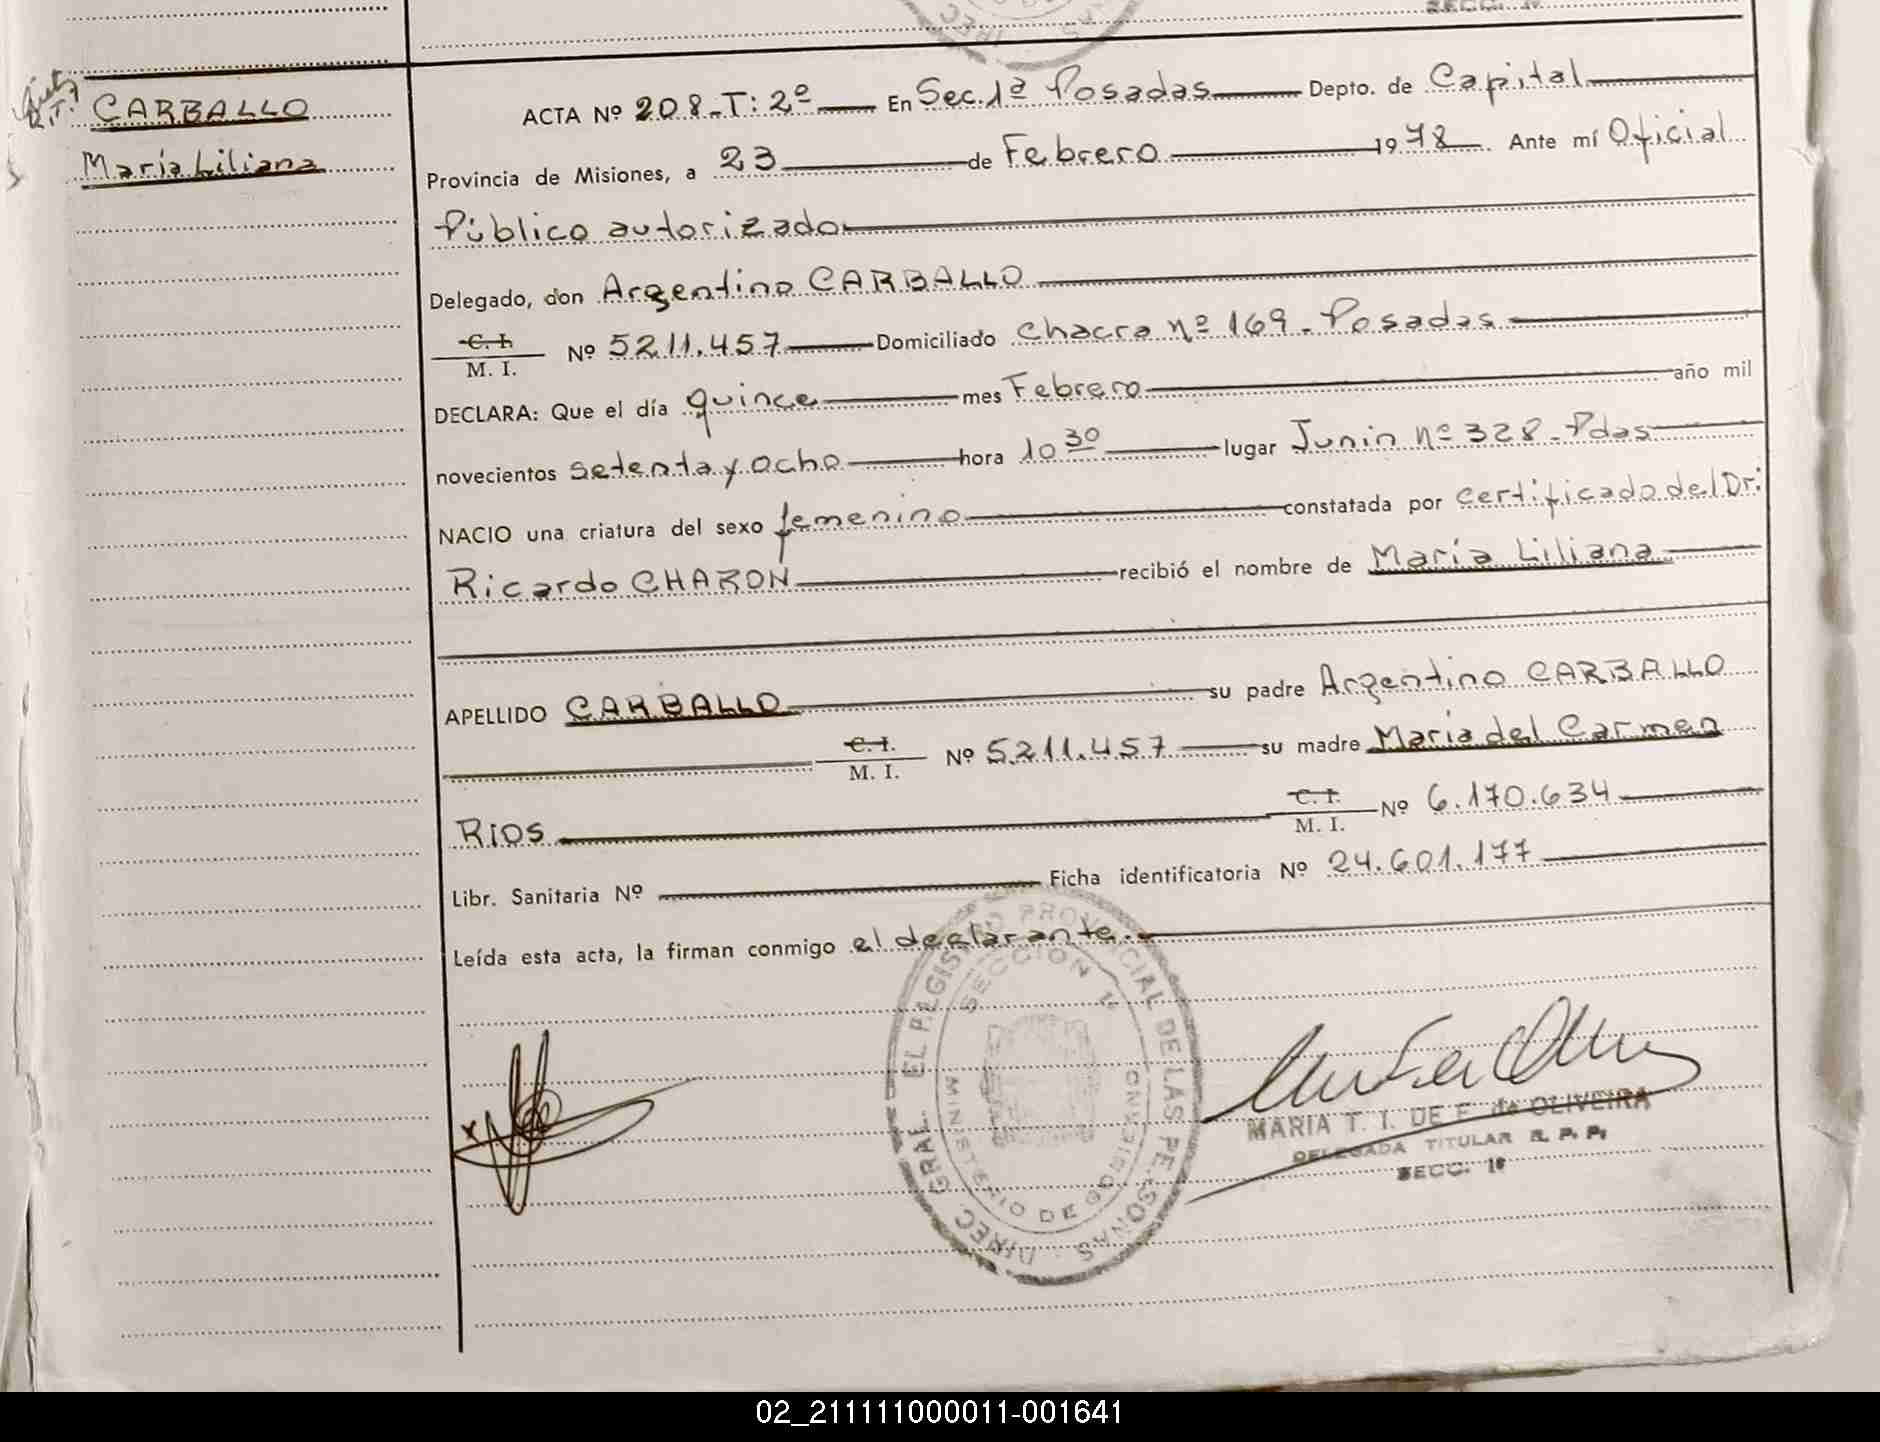 SECC. 1ª
CARBALLO
María Liliana
ACTA Nº 208-T: 2º En Sec. 1ª Posadas Depto. de Capital
Provincia de Misiones, a 23 de Febrero 1978. Ante mí Oficial
Público autorizado
Delegado, don Argentino CARBALLO
C. I.
M. I. Nº 5211.457 Domiciliado Chacra nº 169. Posadas
DECLARA: Que el día quince mes Febrero año mil
novecientos setenta y ocho hora 10 30 lugar Junin nº 328. Pdas
NACIO una criatura del sexo femenino constatada por certificado del Dr:
Ricardo CHARON recibió el nombre de María Liliana
APELLIDO CARBALLO su padre Argentino CARBALLO
C. I.
M. I. Nº 5211.457 su madre María del Carmen
RIOS C. I.
M. I. Nº 6.170.634
Libr. Sanitaria Nº Ficha identificatoria Nº 24.601.177
Leída esta acta, la firman conmigo el declarante.
DIREC. GRAL. EL REGISTRO PROVINCIAL DE LAS PERSONAS
SECCION 1ª
MINISTERIO DE GOBIERNO
x
MARIA T. I. DE F. de OLIVEIRA
DELEGADA TITULAR R. P. P.
SECC. 1ª
02_211111000011-001641